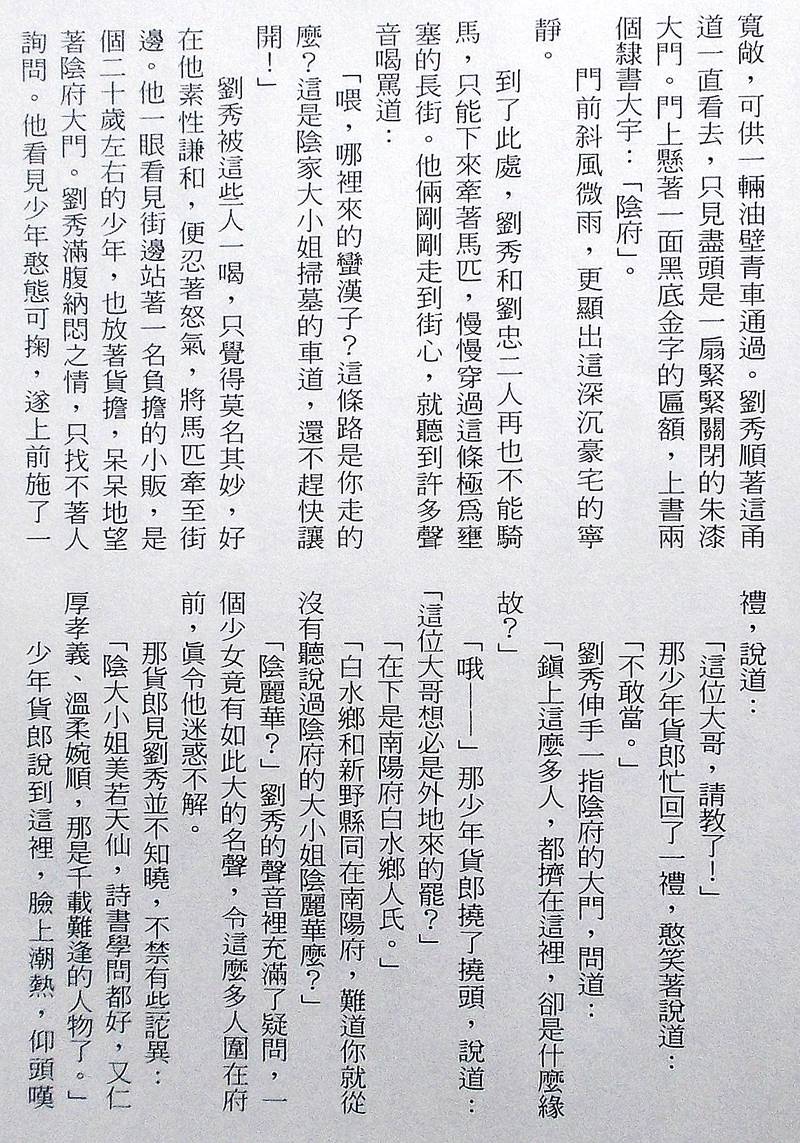 寬敞，可供一輛油壁青車通過。劉秀順著這甬
道一直看去，只見盡頭是一扇緊緊關閉的朱漆
大門。門上懸著一面黑底金字的匾額，上書兩
個隸書大宇：「陰府」。
門前斜風微雨，更顯出這深沉豪宅的寧
靜。
到了此處，劉秀和劉忠二人再也不能騎
馬，只能下來牽著馬匹，慢慢穿過這條極爲壅
塞的長街。他倆剛剛走到街心，就聽到許多聲
音喝罵道：
「喂，哪裡來的蠻漢子？這條路是你走的
麼？這是陰家大小姐掃墓的車道，還不趕快讓
開！」
劉秀被這些人一喝，只覺得莫名其妙，好
在他素性謙和，便忍著怒氣，將馬匹牽至街
邊。他一眼看見街邊站著一名負擔的小販，是
個二十歲左右的少年，也放著貨擔，呆呆地望
著陰府大門。劉秀滿腹納悶之情，只找不著人
詢問。他看見少年憨態可掬，遂上前施了一
禮，說道：
「這位大哥，請教了！」
那少年貨郎忙回了一禮，憨笑著說道：
「不敢當。」
劉秀伸手一指陰府的大門，問道：
「鎭上這麼多人，都擠在這裡，卻是什麼緣
故？」
「哦——」那少年貨郎撓了撓頭，說道：
「這位大哥想必是外地來的罷？」
「在下是南陽府白水鄉人氏。」
「白水鄉和新野縣同在南陽府，難道你就從
沒有聽說過陰府的大小姐陰麗華麼？」
「陰麗華？」劉秀的聲音裡充滿了疑問，一
個少女竟有如此大的名聲，令這麼多人圍在府
前，眞令他迷惑不解。
那貨郎見劉秀並不知曉，不禁有些詫異：
「陰大小姐美若天仙，詩書學問都好，又仁
厚孝義、溫柔婉順，那是千載難逢的人物了。」
少年貨郎說到這裡，臉上潮熱，仰頭嘆